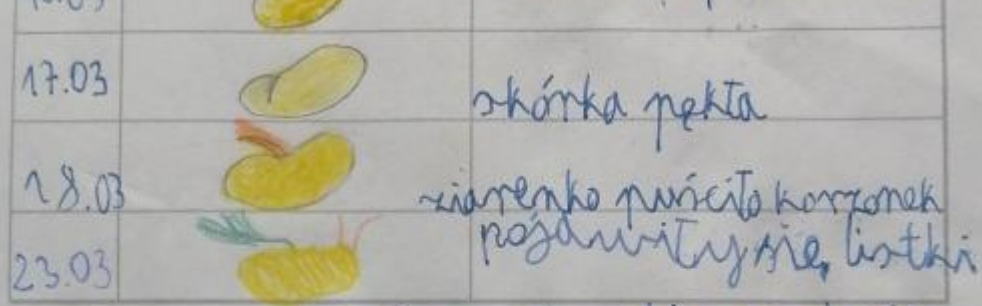 17.03 skórka pękła
18.03 ziarenko puściło korzonek
23.03 pojawiły się listki